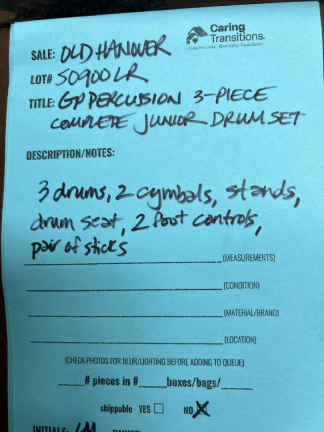 Caring
Transitions.
SALE: OLD HANOVER
LOT# 50900LR
TITLE: GP PERCUSSION 3-PIECE
COMPLETE JUNIOR DRUM SET
DESCRIPTION/NOTES:
3 drums, 2 cymbals, stands,
drum seat, 2 foot controls,
pair of sticks
(MEASUREMENTS)
(CONDITION)
(MATERIAL/BRAND)
(LOCATION)
(CHECK PHOTOS FOR BLUR/LIGHTING BEFORE ADDING TO QUEUE)
# pieces in # boxes/bags/
shippable YES NO
INITIALS: